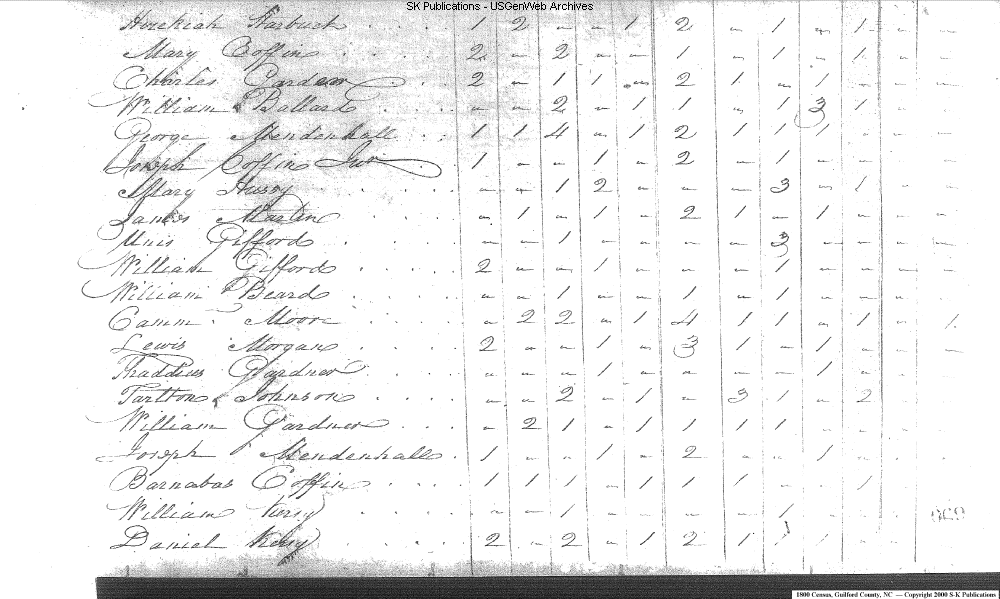 SK Publications - USGenWeb Archives
Hezekiah Starbuck 1 2 - - 1 2 - 1 - 1 -
Mary Coffin 2 - 2 - - 1 - 1 - 1 -
Charles Gardner 2 - 1 1 - 2 1 - 1 - -
William Ballard - - 2 - 1 1 - 1 3 1 -
George Mendenhall 1 1 4 - 1 2 1 1 1 - -
Joseph Coffin Jun 1 - - 1 - 2 - 1 - - -
Mary Hussy - - 1 2 - - - 3 - 1 -
James Martin - 1 - 1 - 2 1 - 1 - -
Unis Gifford - - 1 - - - - 3 - - - -
William Gifford 2 - - 1 - - - 1 - - - -
William Beard - - 1 - - 1 - 1 - - -
Camm Moore - 2 2 - 1 4 1 1 - 1 - 1
Lewis Morgan 2 - - 1 - 3 1 - 1 - - -
Thaddius Gardner - - - 1 - - - - 1 - -
Tarlton Johnson - - 2 - 1 - 3 1 - 2 -
William Gardner - 2 1 - 1 1 1 1 - - -
Joseph Mendenhall 1 - - 1 - 2 - - 1 - -
Barnabas Coffin 1 1 1 - 1 1 1 - - 1
William Kersy - - 1 - - - - 1 - -
Daniel Kersy 2 - 2 - 1 2 1 1 1 - -
1800 Census, Guilford County, NC — Copyright 2000 S-K Publications